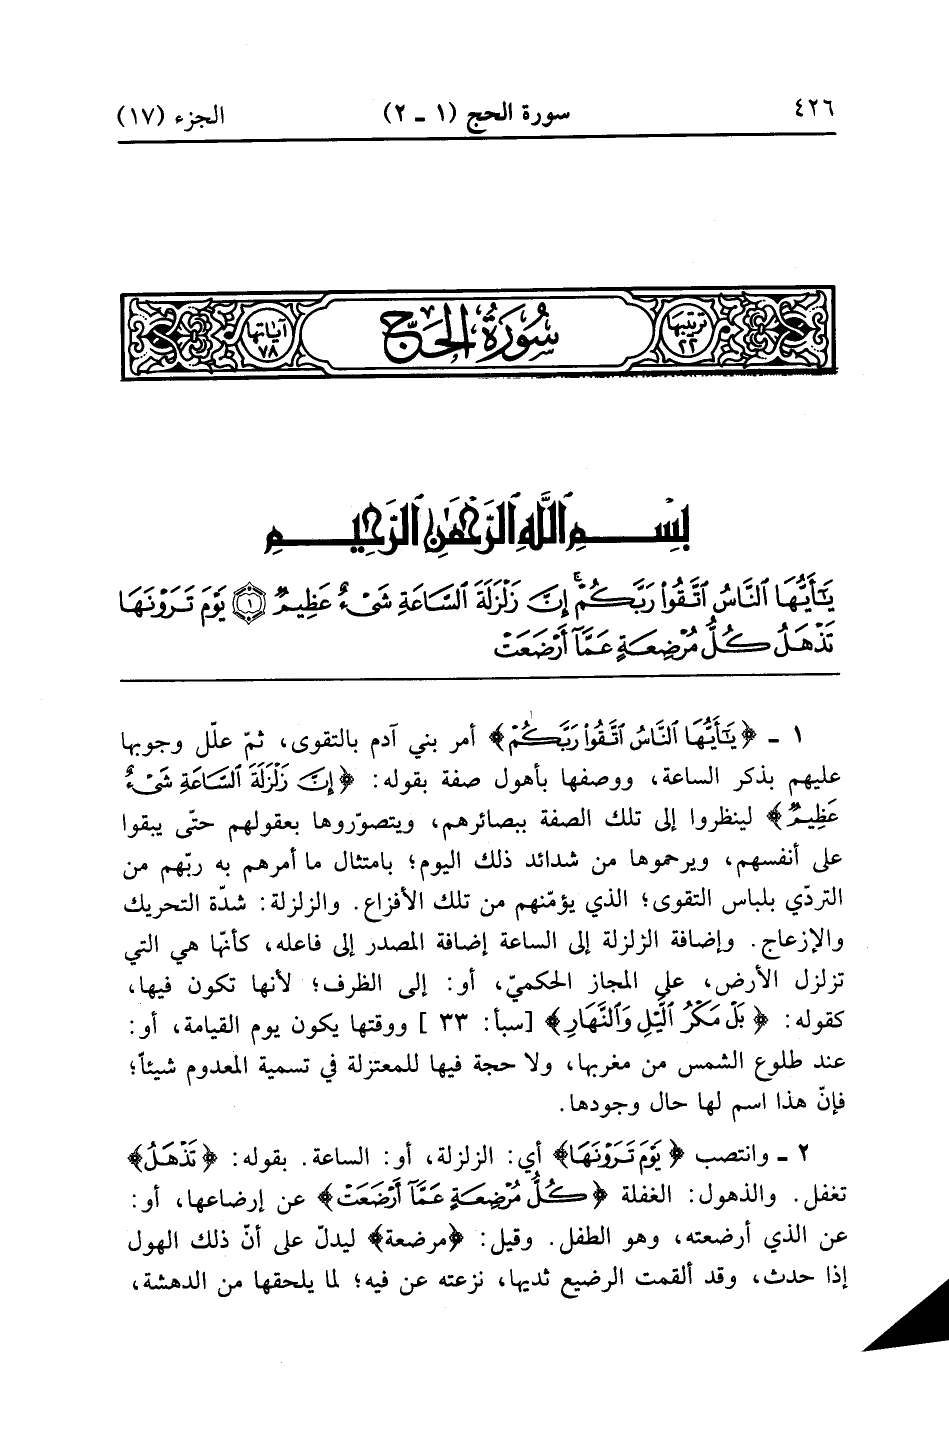 ٤٢٦ سورة الحج (١ ـ ٢) الجزء (١٧)
ترتيبها ٢٢ سُورَةُ الحَجّ آياتها ٧٨
بِسْمِ ٱللَّهِ ٱلرَّحْمَٰنِ ٱلرَّحِيمِ
يَٰٓأَيُّهَا ٱلنَّاسُ ٱتَّقُوا۟ رَبَّكُمْ ۚ إِنَّ زَلْزَلَةَ ٱلسَّاعَةِ شَىْءٌ عَظِيمٌ ﴿١﴾ يَوْمَ تَرَوْنَهَا
تَذْهَلُ كُلُّ مُرْضِعَةٍ عَمَّآ أَرْضَعَتْ
١ ـ ﴿يَٰٓأَيُّهَا ٱلنَّاسُ ٱتَّقُوا۟ رَبَّكُمْ﴾ أمر بني آدم بالتقوى، ثمّ علّل وجوبها
عليهم بذكر الساعة، ووصفها بأهول صفة بقوله: ﴿إِنَّ زَلْزَلَةَ ٱلسَّاعَةِ شَىْءٌ
عَظِيمٌ﴾ لينظروا إلى تلك الصفة ببصائرهم، ويتصوّروها بعقولهم حتّى يبقوا
على أنفسهم، ويرحموها من شدائد ذلك اليوم؛ بامتثال ما أمرهم به ربّهم من
التردّي بلباس التقوى؛ الذي يؤمّنهم من تلك الأفزاع. والزلزلة: شدّة التحريك
والإزعاج. وإضافة الزلزلة إلى الساعة إضافة المصدر إلى فاعله، كأنّها هي التي
تزلزل الأرض، على المجاز الحكميّ، أو: إلى الظرف؛ لأنها تكون فيها،
كقوله: ﴿بَلْ مَكْرُ ٱلَّيْلِ وَٱلنَّهَارِ﴾ [سبأ: ٣٣ ] ووقتها يكون يوم القيامة، أو:
عند طلوع الشمس من مغربها، ولا حجة فيها للمعتزلة في تسمية المعدوم شيئاً؛
فإنّ هذا اسم لها حال وجودها.
٢ ـ وانتصب ﴿يَوْمَ تَرَوْنَهَا﴾ أي: الزلزلة، أو: الساعة. بقوله: ﴿تَذْهَلُ﴾
تغفل. والذهول: الغفلة ﴿كُلُّ مُرْضِعَةٍ عَمَّآ أَرْضَعَتْ﴾ عن إرضاعها، أو:
عن الذي أرضعته، وهو الطفل. وقيل: ﴿مرضعة﴾ ليدلّ على أنّ ذلك الهول
إذا حدث، وقد ألقمت الرضيع ثديها، نزعته عن فيه؛ لما يلحقها من الدهشة،